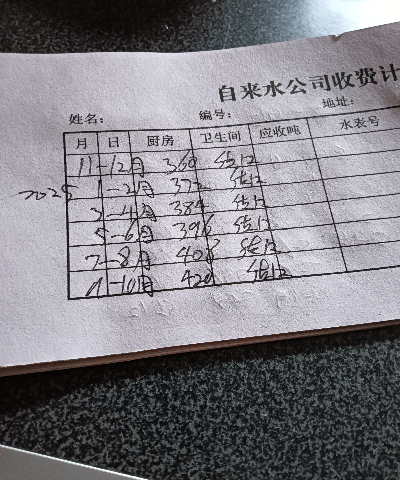 自来水公司收费计
姓名： 编号： 地址：
月 日 厨房 卫生间 应收吨 水表号
11-12月 360
2025 1-2月 372
3-4月 384
5-6月 396
7-8月 408
9-10月 420